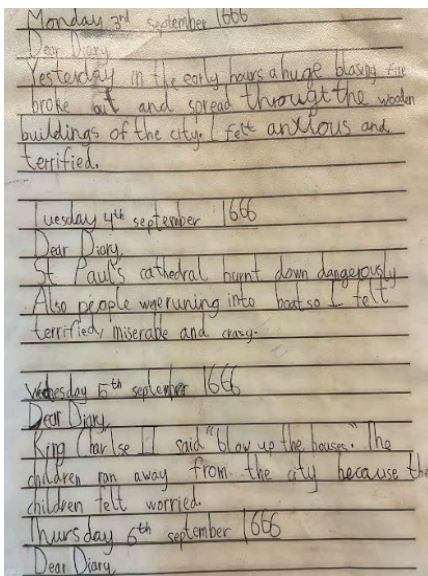 Monday 3rd september 1666
Dear Diary
Yesterday in the early hours a huge blasing fire
broke out and spread througt the wooden
buildings of the city. I felt anxious and
terrified.
Tuesday 4th september 1666
Dear Diary,
St Paul's cathedral burnt down dangerously
Also people were runing into boat so I felt
terrified, miserable and crasy.
Wednesday 5th september 1666
Dear Diary,
King Charlse II said "blow up the houses." The
children ran away from the city because the
children felt worried.
Thursday 6th september 1666
Dear Diary,